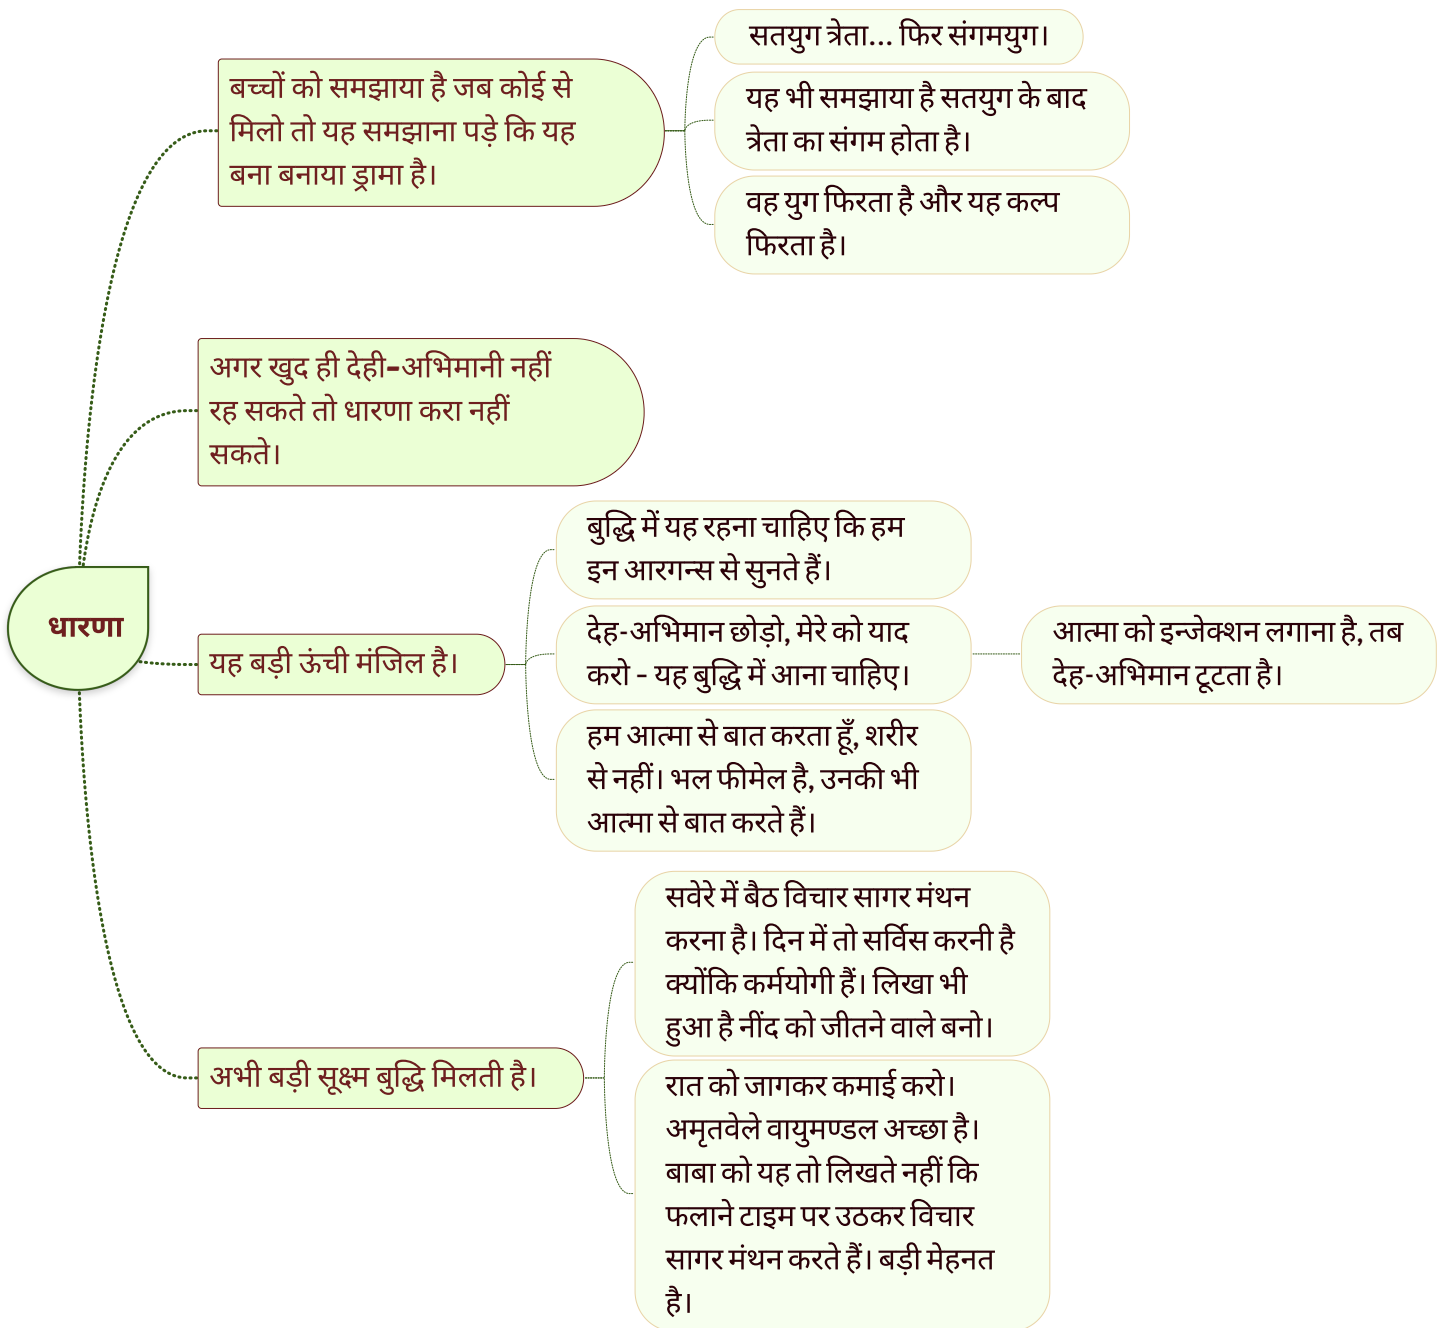 धारणा
बच्चों को समझाया है जब कोई से
मिलो तो यह समझाना पड़े कि यह
बना बनाया ड्रामा है।
सतयुग त्रेता... फिर संगमयुग।
यह भी समझाया है सतयुग के बाद
त्रेता का संगम होता है।
वह युग फिरता है और यह कल्प
फिरता है।
अगर खुद ही देही-अभिमानी नहीं
रह सकते तो धारणा करा नहीं
सकते।
यह बड़ी ऊंची मंजिल है।
बुद्धि में यह रहना चाहिए कि हम
इन आरगन्स से सुनते हैं।
देह-अभिमान छोड़ो, मेरे को याद
करो - यह बुद्धि में आना चाहिए।
आत्मा को इन्जेक्शन लगाना है, तब
देह-अभिमान टूटता है।
हम आत्मा से बात करता हूँ, शरीर
से नहीं। भल फीमेल है, उनकी भी
आत्मा से बात करते हैं।
अभी बड़ी सूक्ष्म बुद्धि मिलती है।
सवेरे में बैठ विचार सागर मंथन
करना है। दिन में तो सर्विस करनी है
क्योंकि कर्मयोगी हैं। लिखा भी
हुआ है नींद को जीतने वाले बनो।
रात को जागकर कमाई करो।
अमृतवेले वायुमण्डल अच्छा है।
बाबा को यह तो लिखते नहीं कि
फलाने टाइम पर उठकर विचार
सागर मंथन करते हैं। बड़ी मेहनत
है।